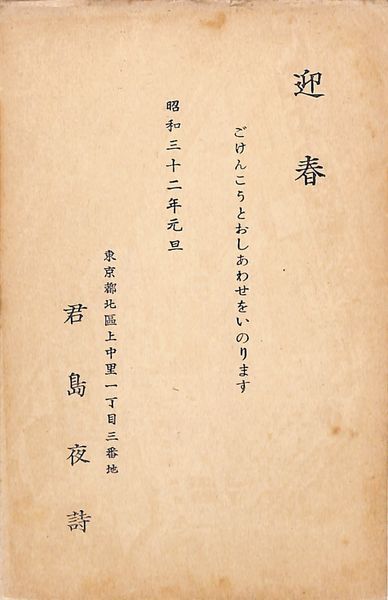 迎春
ごけんこうとおしあわせをいのります
昭和三十二年元旦
東京都北區上中里一丁目三番地
君島夜詩